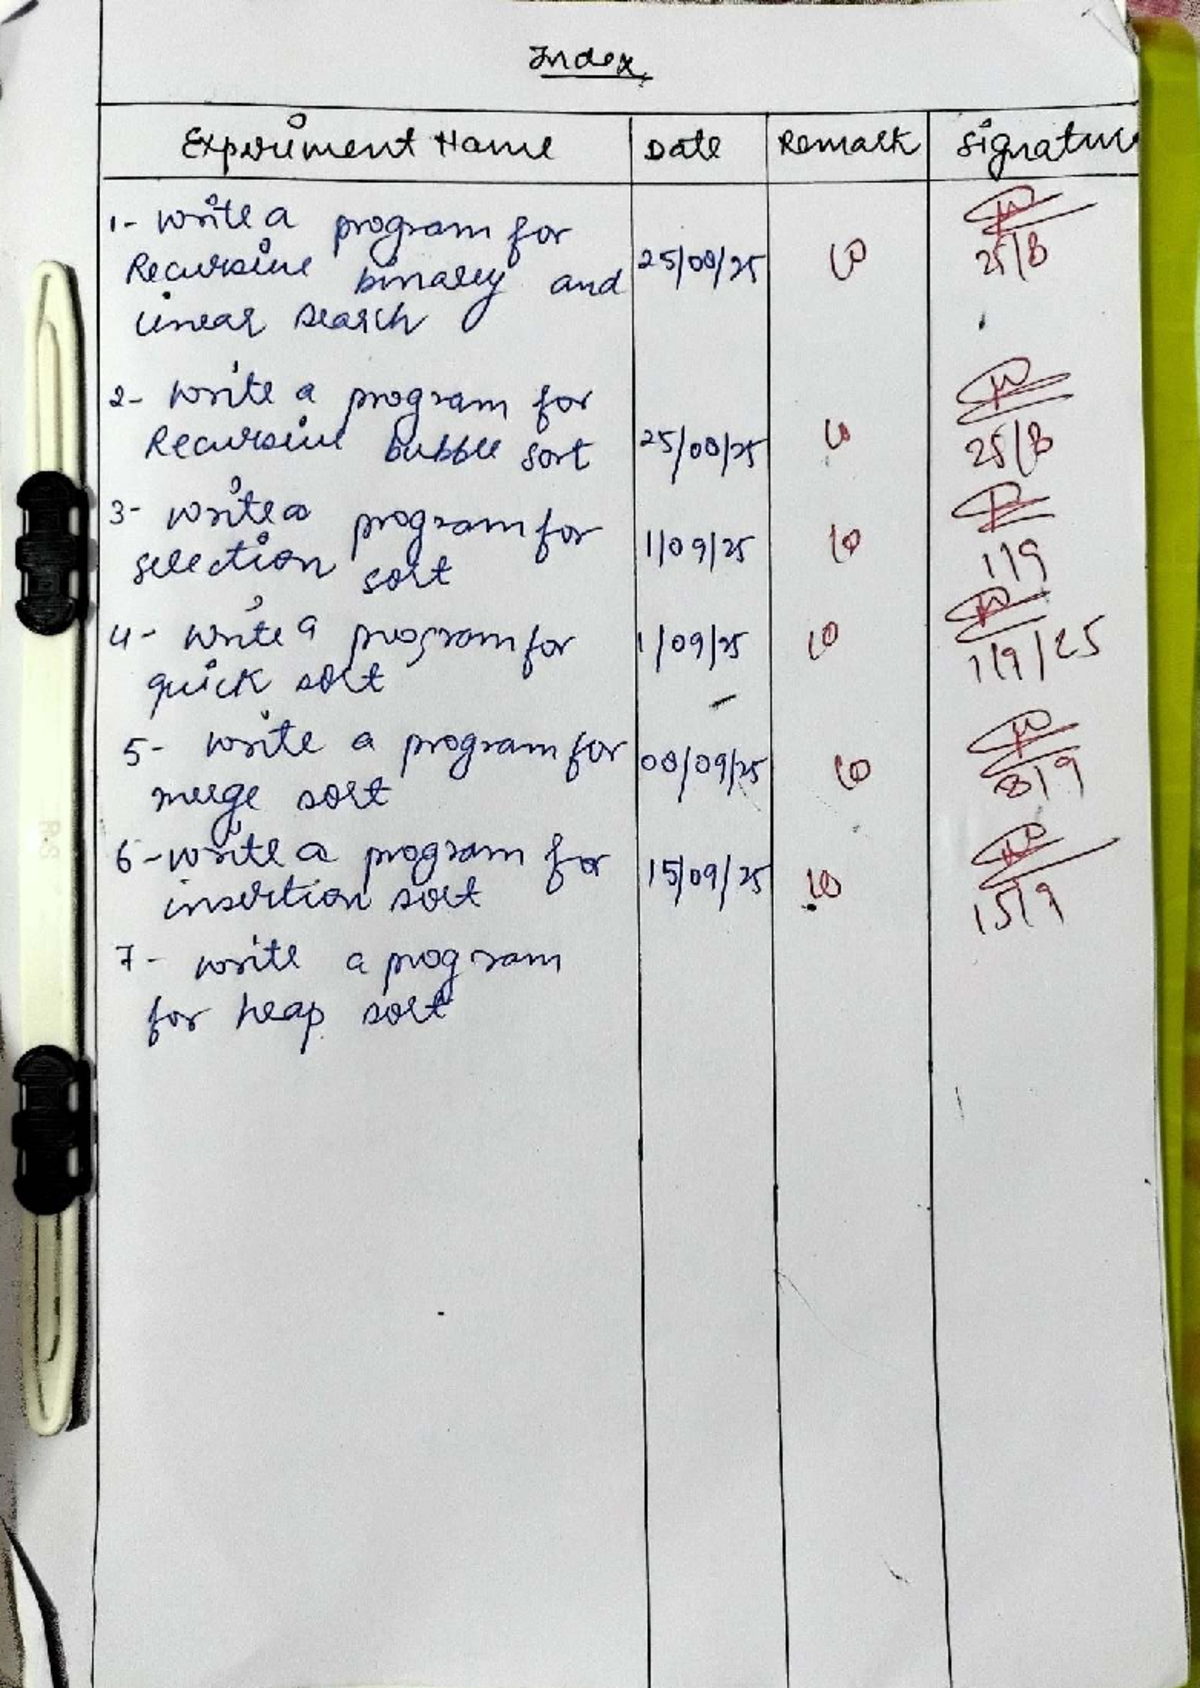 Index
Experiment Name Date Remark Signature
1- Write a program for
Recursive binary and 25/08/25 10 25/8
linear search
2- Write a program for
Recursive bubble sort 25/08/25 10 25/8
3- Write a program for
selection sort 1/09/25 10 1/9
4- Write a program for 1/09/25 10 1/9/25
quick sort
5- Write a program for 08/09/25 10 8/9
merge sort
6- Write a program for 15/09/25 10 15/9
insertion sort
7- Write a program
for heap sort